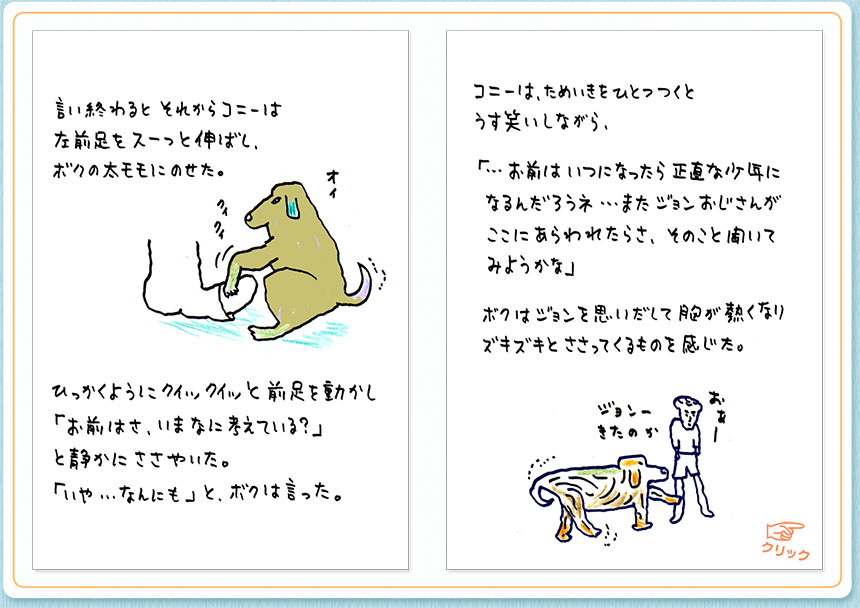 言い終わると それからコニーは
左前足をスーっと伸ばし、
ボクの太モモにのせた。
オイ
クイ
クイ
ひっかくようにクイッ クイッと前足を動かし
「お前はさ、いまなに考えている?」
と静かにささやいた。
「いや…なんにも」と、ボクは言った。
コニーは、ためいきをひとつつくと
うす笑いしながら、
「…お前はいつになったら正直な少年に
なるんだろうネ…またジョンおじさんが
ここにあらわれたらさ、そのこと聞いて
みようかな」
ボクはジョンを思いだして胸が熱くなり
ズキズキとささってくるものを感じた。
おぁー
ジョンー
きたのか
クリック